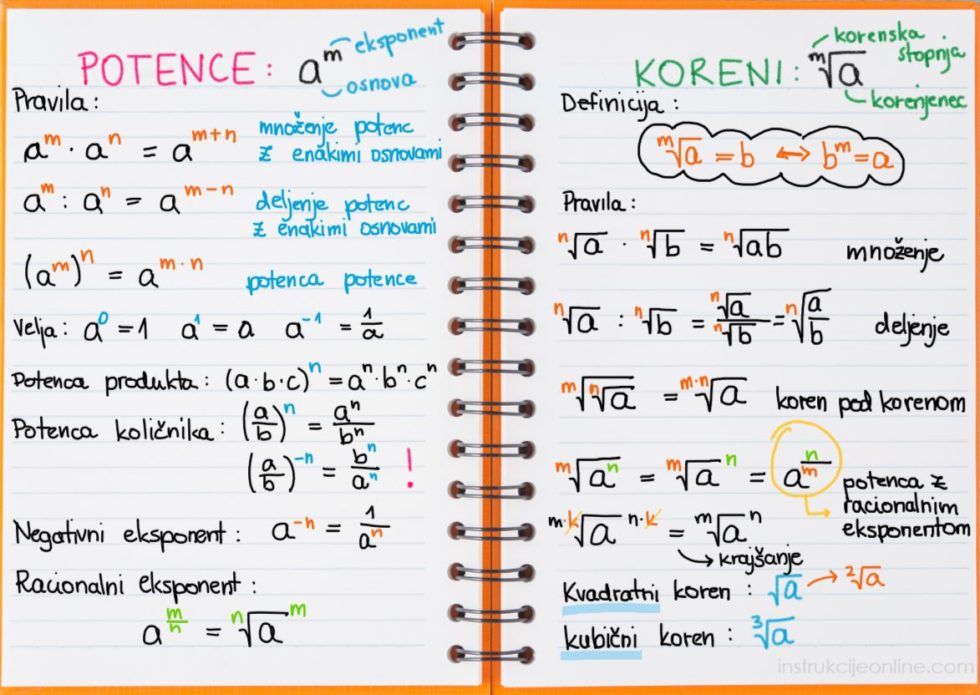 POTENCE: aᵐ eksponent
osnova
Pravila:
aᵐ · aⁿ = aᵐ⁺ⁿ množenje potenc
z enakimi osnovami
aᵐ : aⁿ = aᵐ⁻ⁿ deljenje potenc
z enakimi osnovami
(aᵐ)ⁿ = aᵐ·ⁿ potenca potence
Velja: a⁰ = 1 a¹ = a a⁻¹ = 1/a
Potenca produkta: (a·b·c)ⁿ = aⁿ·bⁿ·cⁿ
Potenca količnika: (a/b)ⁿ = aⁿ/bⁿ
(a/b)⁻ⁿ = bⁿ/aⁿ !
Negativni eksponent: a⁻ⁿ = 1/aⁿ
Racionalni eksponent:
a^(m/n) = ⁿ√a ᵐ
KORENI: ᵐ√a korenska stopnja
korenjenec
Definicija:
ᵐ√a = b ↔ bᵐ = a
Pravila:
ⁿ√a · ⁿ√b = ⁿ√ab množenje
ⁿ√a : ⁿ√b = ⁿ√a/ⁿ√b = ⁿ√(a/b) deljenje
ᵐ√ⁿ√a = ᵐ·ⁿ√a koren pod korenom
ᵐ√aⁿ = ᵐ√a ⁿ = a^(n/m) potenca z
racionalnim
eksponentom
ᵐ·ᵏ√a ⁿ·ᵏ = ᵐ√a ⁿ
krajšanje
Kvadratni koren: √a → ²√a
kubični koren: ³√a
instrukcijeonline.com